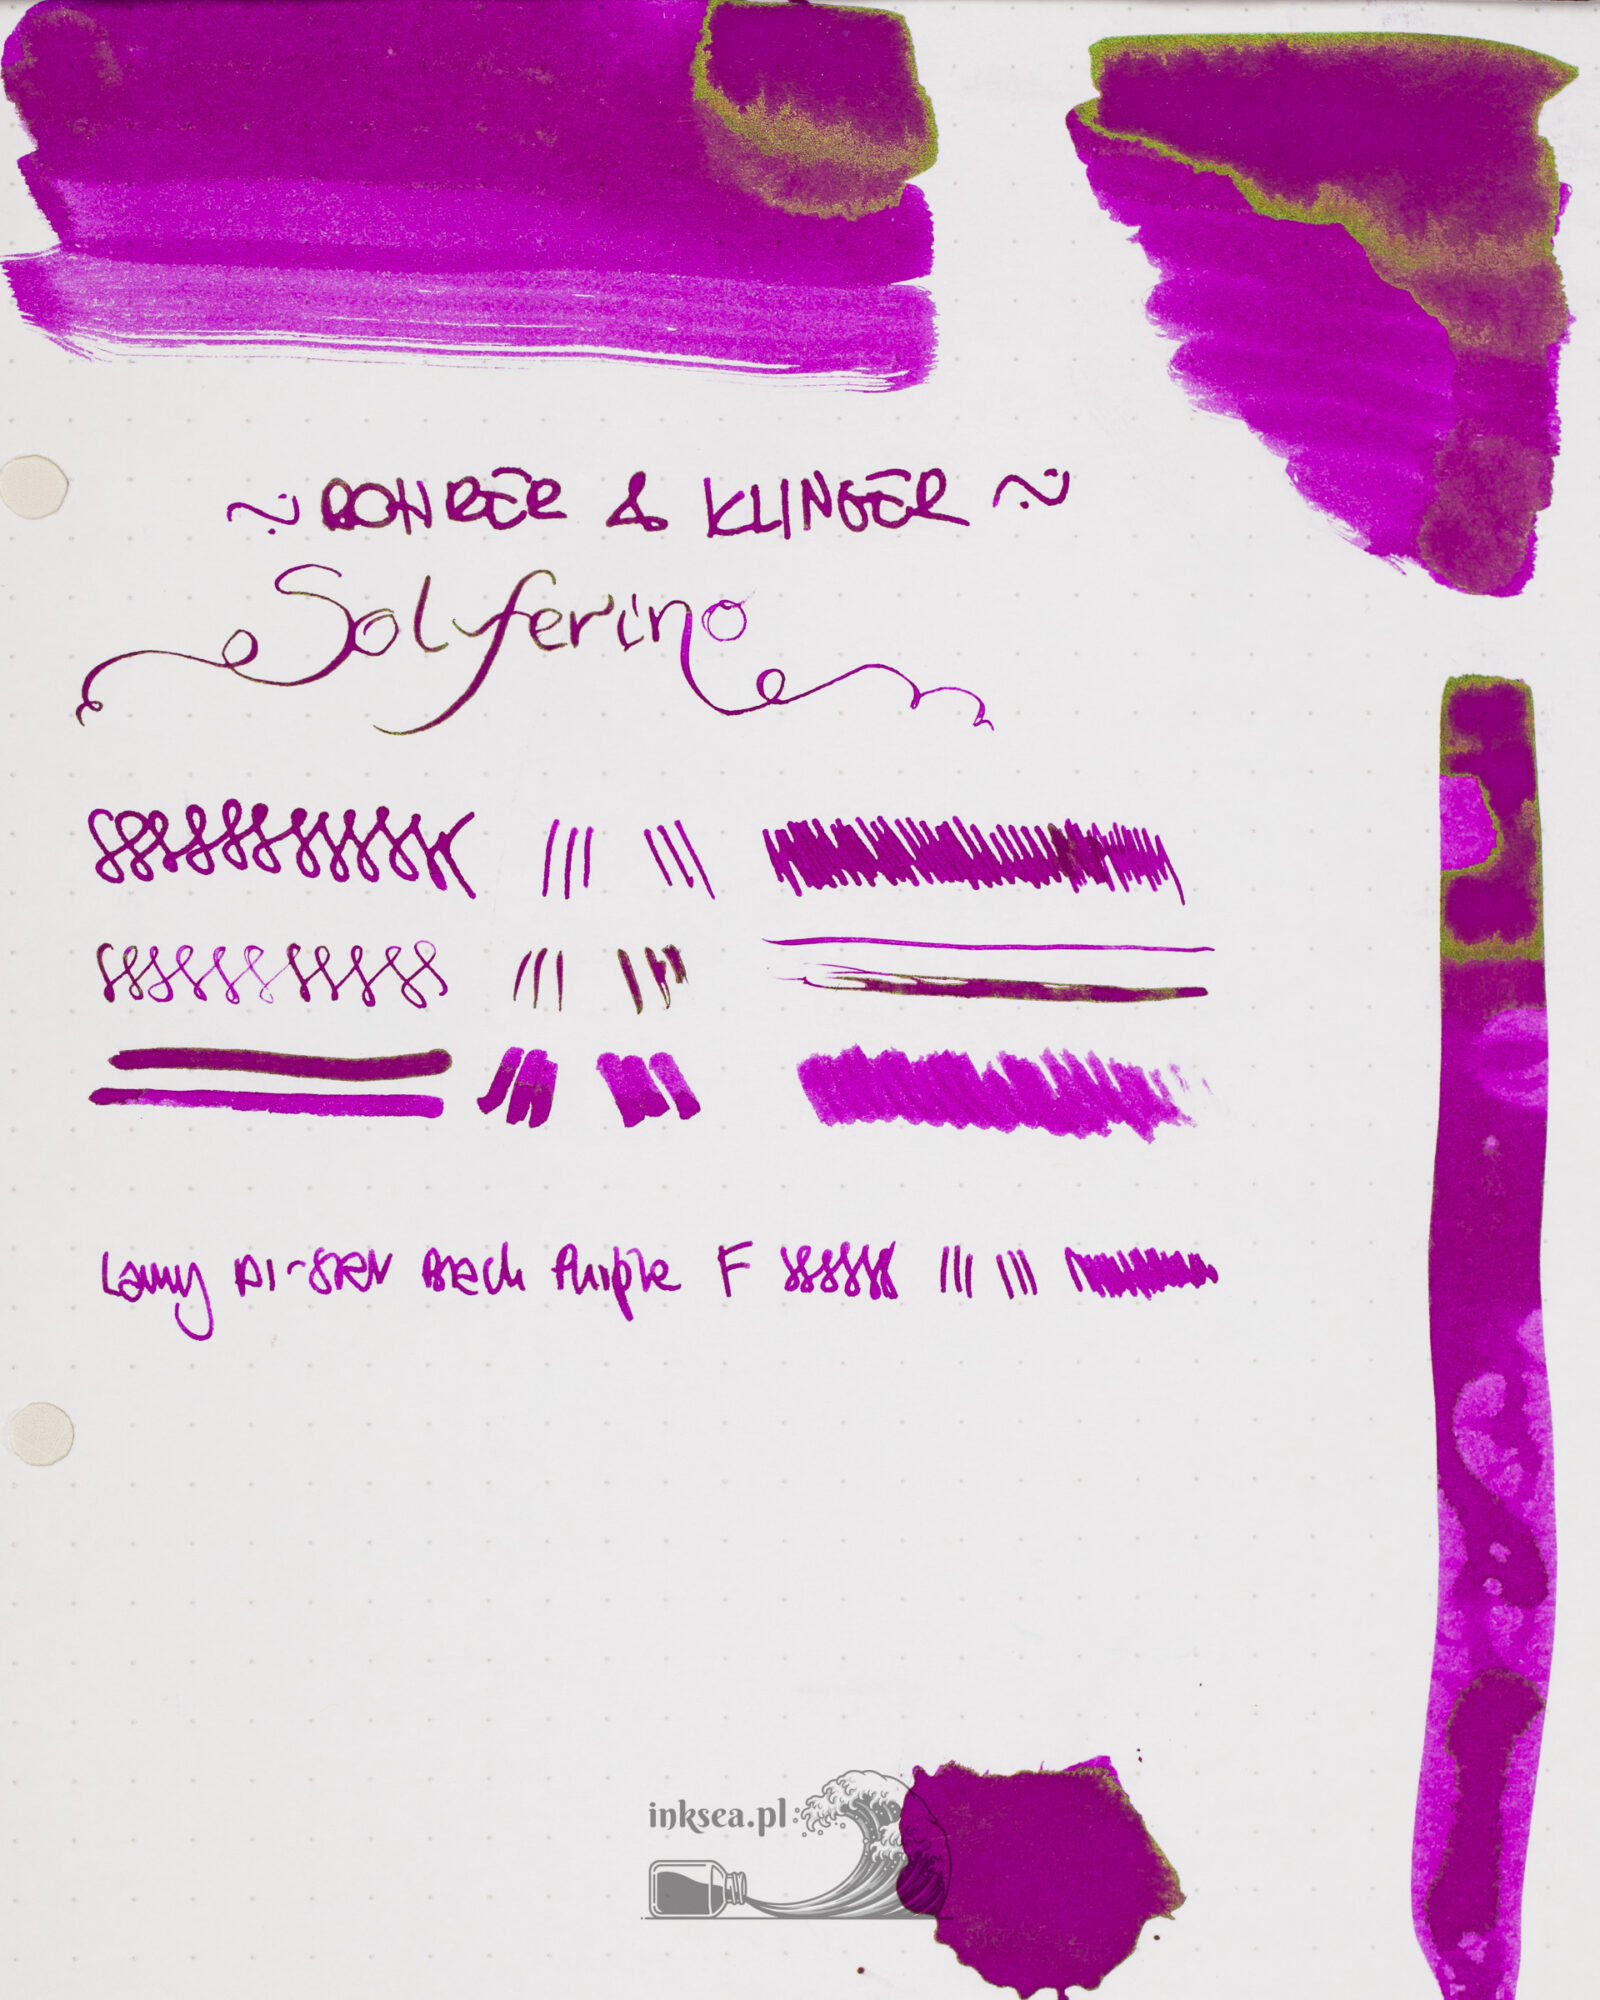 ~ ROHRER & KLINGER ~
Solferino
Lamy Al-Star Black Purple F
inksea.pl